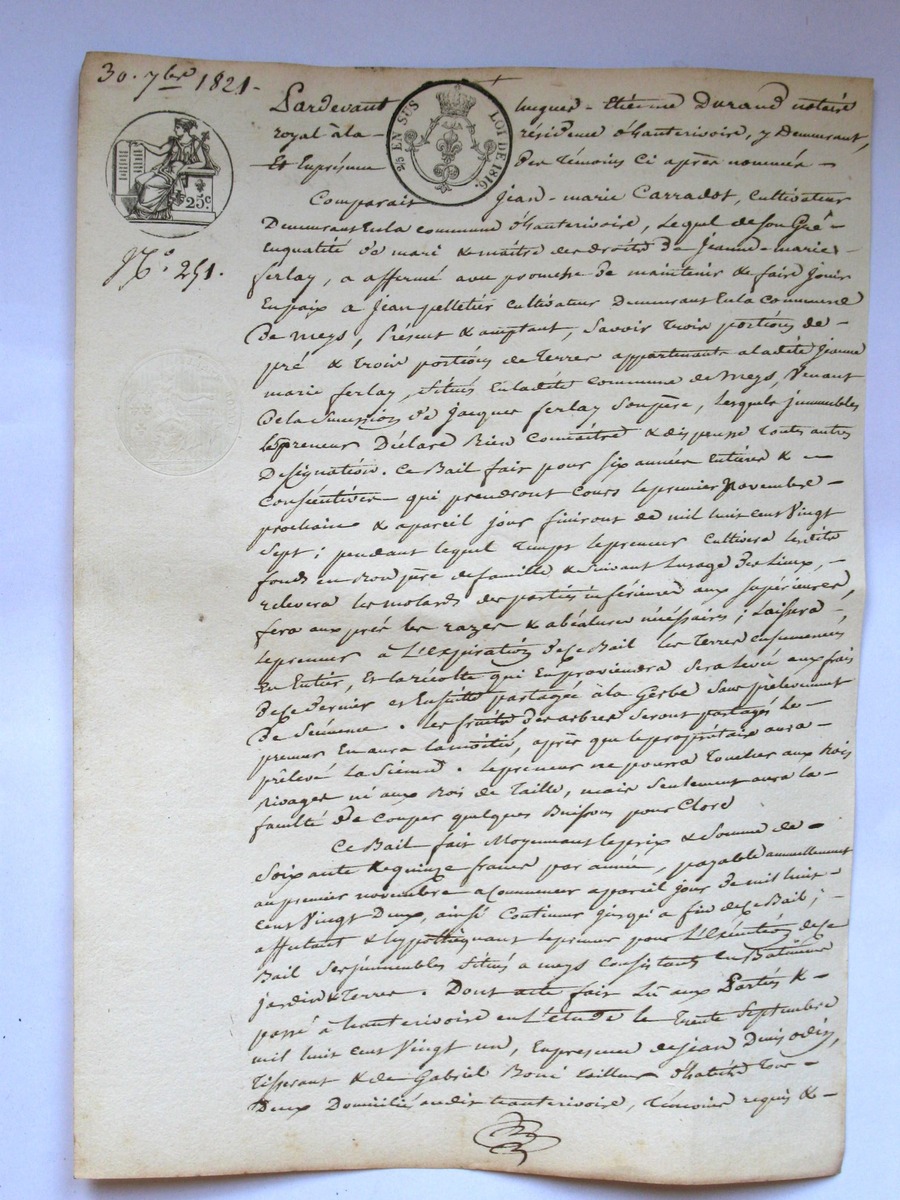 30. 7bre 1821.
Pardevant hugues-Etienne Durand notaire
royal à la résidence d'hauterivoire, y Demeurant,
Et En présence Des Témoins Ci après nommés
25 EN SUS LOI DE 1816.
25c
No. 251.
Comparait jean-marie Carradot, Cultivateur
Demeurant En la commune d'hauterivoire, Lequel de son Gré
En qualité de mari & maître des droits De Jeanne-marie
ferlay, a affermé avec promesse de maintenir & faire jouir
En paix a Jean pelletier Cultivateur Demeurant En la Commune
De meys, Présent & acceptant, Savoir Trois portions de
pré & trois portions de Terres appartenants a ladite Jeanne
marie ferlay, situés En ladite Commune de meys, Venant
De la Succession de Jacques ferlay Son père, Lesquels immeubles
le preneur Déclare Bien Connaître & dispense toute autre
Désignation. Ce Bail fait pour six années Entières &
Consécutives qui prendront Cours le premier Novembre
prochain & a pareil jour finiront de mil huit cent Vingt
Sept; pendant lequel Temps le preneur Cultivera lesdits
fonds en Bon père de famille & Suivant L'usage Des Lieux,
relevera les molards des parties inférieures aux Supérieures,
fera aux prés les razes & abéalures nécéssaires; Laissera
le preneur à L'Expiration de Ce Bail les Terres Ensemencés
En Entier, Et la récolte qui En proviendra Sera levée aux frais
De Ce Dernier et Ensuite partagée à la Gerbe Sans prélevement
De Sémence. Les fruits des arbres Seront partagés Le
preneur En aura la moitié, après que le propriétaire aura
prélevé La Sienne. Le preneur ne pourra Toucher aux Bois
Rivages ni aux Bois de Taille, mais Seulement aura la
faculté De Couper quelques Buissons pour Clore
Ce Bail fait Moyennant le prix & Somme de
Soixante & quinze francs par année, payable annuellement
au premier novembre a Commencer a pareil jour De mil huit
cent Vingt Deux, ainsi Continuer jusqu'a fin de Ce Bail;
affectant & hypothèquant le preneur pour L'Exécution de Ce
Bail Ses immeubles Situés a meys Consistants En Bâtiment
Jardin & Terres. Dont acte fait Lu aux Parties &
passé à hauterivoire en L'étude le Trente Septembre
mil huit cent Vingt un, En presence de jean Denis
Tisserant & de Gabriel Boni Tailleur d'habits Tous
Deux Domiciliés audit hauterivoire, Témoins requis &